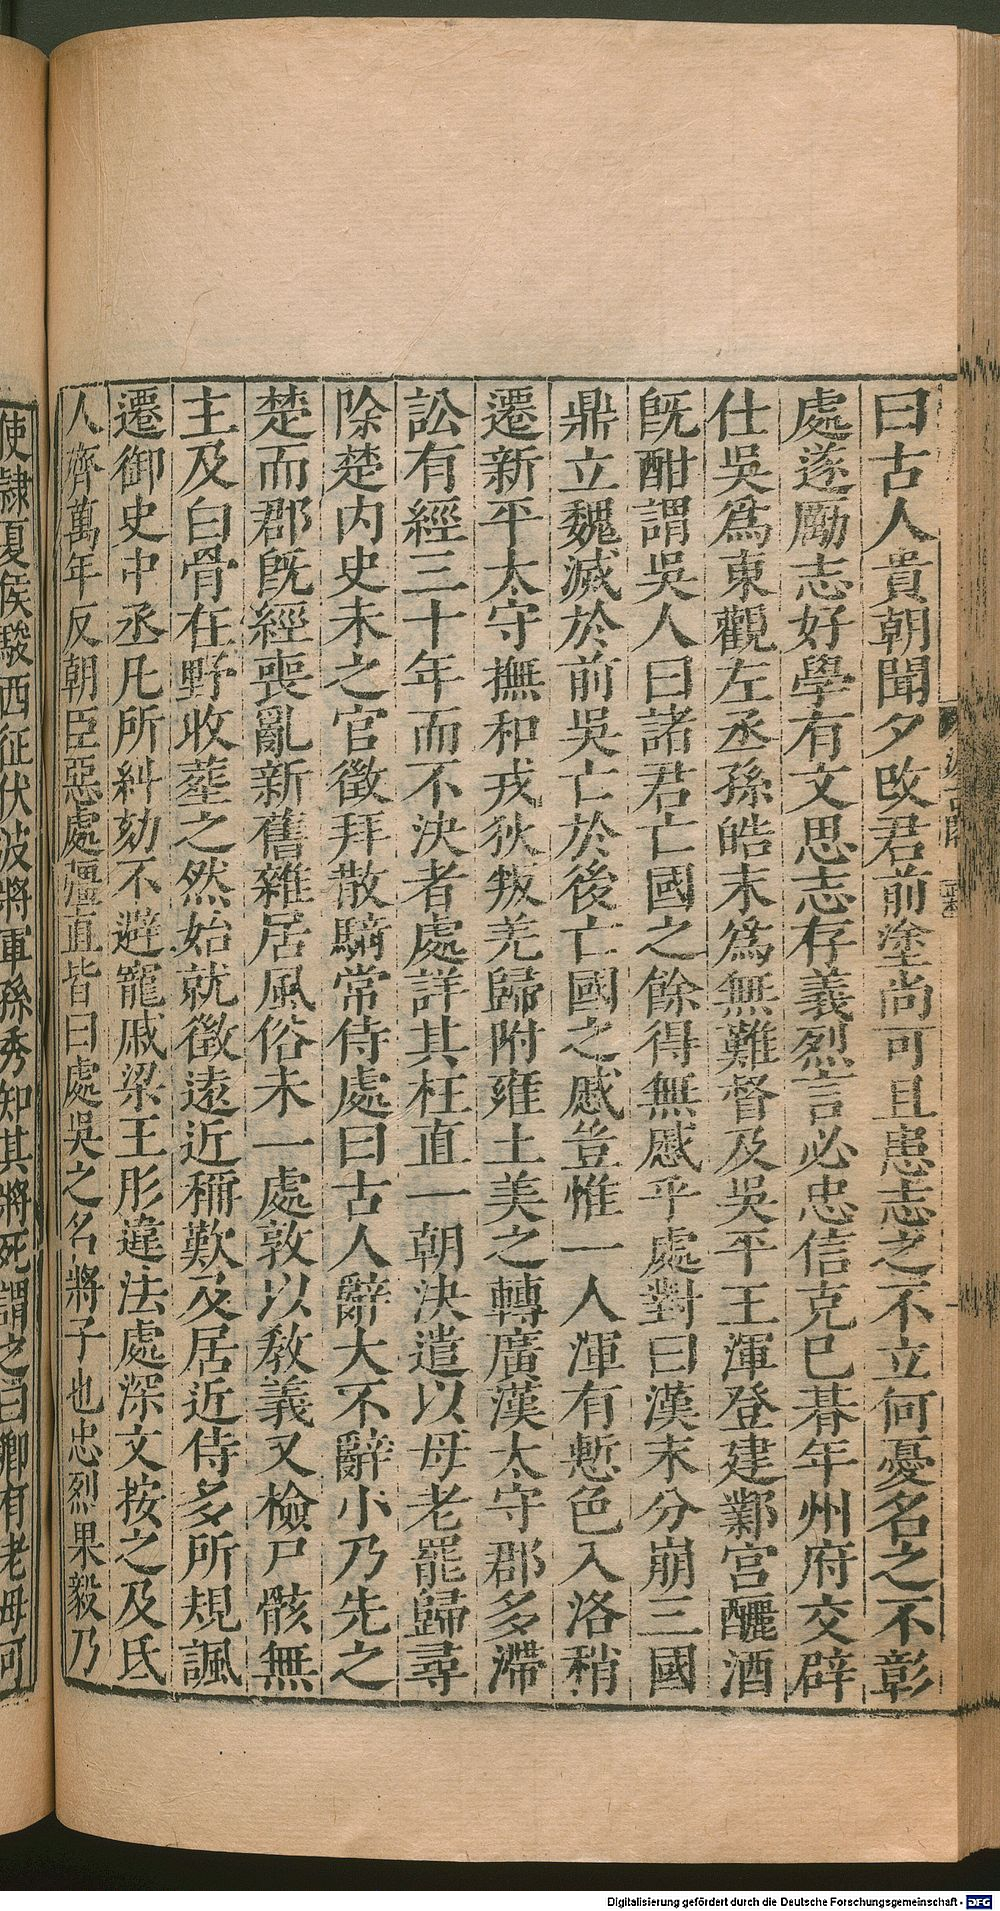 曰古人貴朝聞夕改君前塗尚可且患志之不立何憂名之不彰
處遂勵志好學有文思志存義烈言必忠信克己朞年州府交辟
仕吳爲東觀左丞孫皓末爲無難督及吳平王渾登建鄴宮釃酒
旣酣謂吳人曰諸君亡國之餘得無慼乎處對曰漢末分崩三國
鼎立魏滅於前吳亡於後亡國之慼豈惟一人渾有慙色入洛稍
遷新平太守撫和戎狄叛羌歸附雍土美之轉廣漢太守郡多滯
訟有經三十年而不決者處詳其枉直一朝決遣以母老罷歸尋
除楚內史未之官徵拜散騎常侍處曰古人辭大不辭小乃先之
楚而郡旣經喪亂新舊雜居風俗未一處敦以敎義又檢尸骸無
主及白骨在野收葬之然始就徵遠近稱歎及居近侍多所規諷
遷御史中丞凡所糾劾不避寵戚梁王肜違法處深文按之及氐
人齊萬年反朝臣惡處彊直皆曰處吳之名將子也忠烈果毅乃
使隷夏侯駿西征伏波將軍孫秀知其將死謂之曰卿有老母可
Digitalisierung gefördert durch die Deutsche Forschungsgemeinschaft - DFG